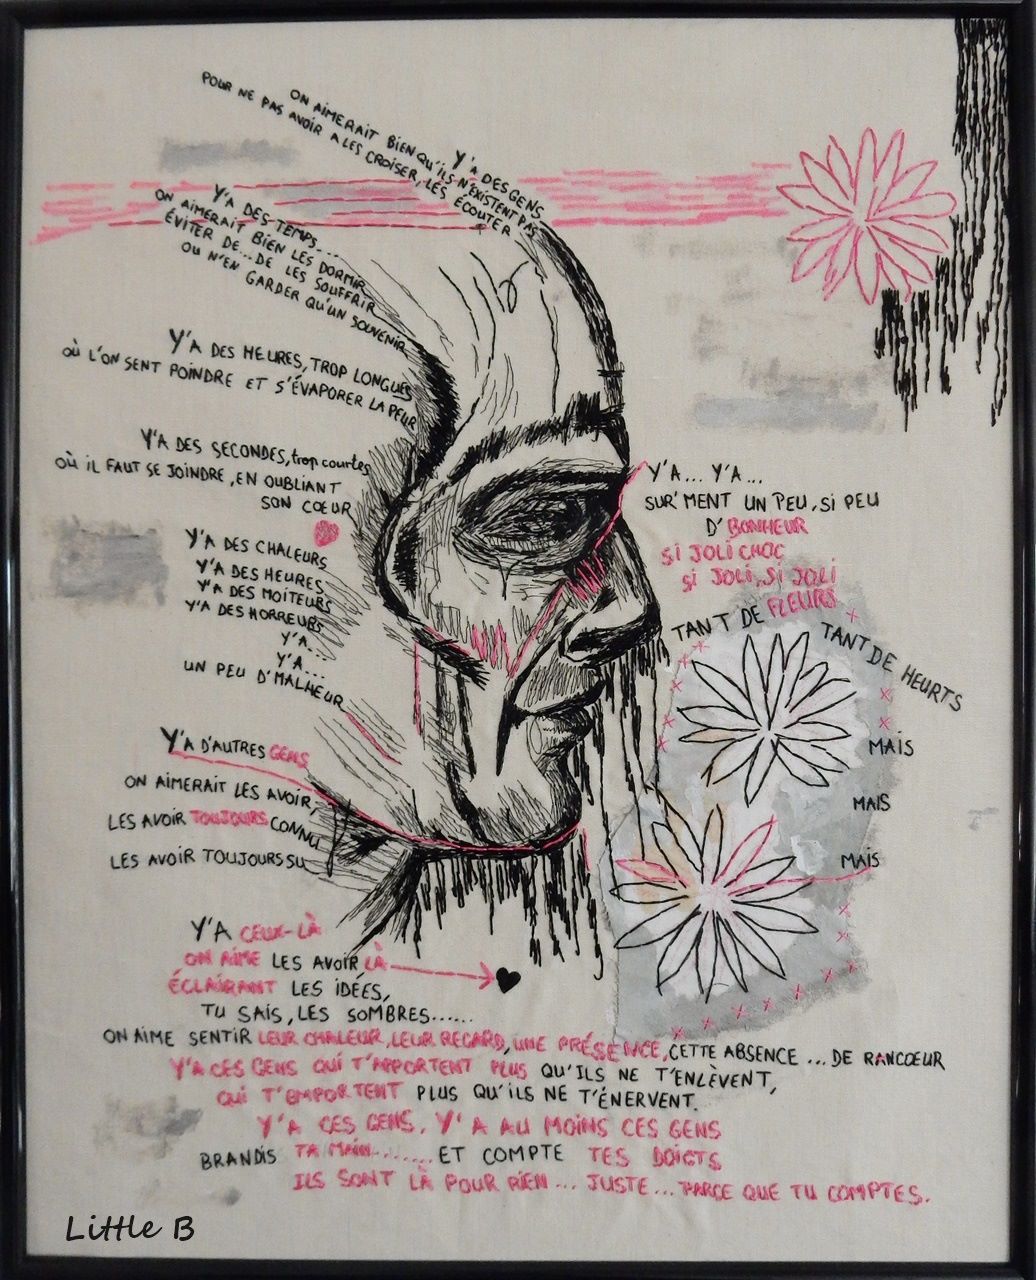 Y'A DES GENS
ON AIMERAIT BIEN QU'ILS N'EXISTENT PAS
POUR NE PAS AVOIR A LES CROISER, LES ÉCOUTER
Y'A DES TEMPS...
ON AIMERAIT BIEN LES DORMIR
ÉVITER DE... DE LES SOUFFRIR
OU N'EN GARDER QU'UN SOUVENIR
Y'A DES HEURES, TROP LONGUES
OÙ L'ON SENT POINDRE ET S'ÉVAPORER LA PEUR
Y'A DES SECONDES, trop courtes
OÙ IL FAUT SE JOINDRE, EN OUBLIANT
SON COEUR
Y'A DES CHALEURS
Y'A DES HEURES
Y'A DES MOITEURS
Y'A DES HORREURS
Y'A...
Y'A...
UN PEU D'MALHEUR
Y'A... Y'A...
SUR'MENT UN PEU, SI PEU
D'BONHEUR
SI JOLI CHOC
SI JOLI, SI JOLI
TANT DE FLEURS
TANT DE HEURTS
MAIS
MAIS
MAIS
Y'A D'AUTRES GENS
ON AIMERAIT LES AVOIR,
LES AVOIR TOUJOURS CONNU
LES AVOIR TOUJOURS SU
Y'A CEUX-LÀ
ON AIME LES AVOIR LÀ
ÉCLAIRANT LES IDÉES,
TU SAIS, LES SOMBRES......
ON AIME SENTIR LEUR CHALEUR, LEUR REGARD, UNE PRÉSENCE, CETTE ABSENCE ... DE RANCOEUR
Y'A CES GENS QUI T'APPORTENT PLUS QU'ILS NE T'ENLÈVENT,
QUI T'EMPORTENT PLUS QU'ILS NE T'ÉNERVENT.
Y'A CES GENS, Y'A AU MOINS CES GENS
BRANDIS TA MAIN........ ET COMPTE TES DOIGTS
ILS SONT LÀ POUR RIEN ... JUSTE ... PARCE QUE TU COMPTES.
Little B